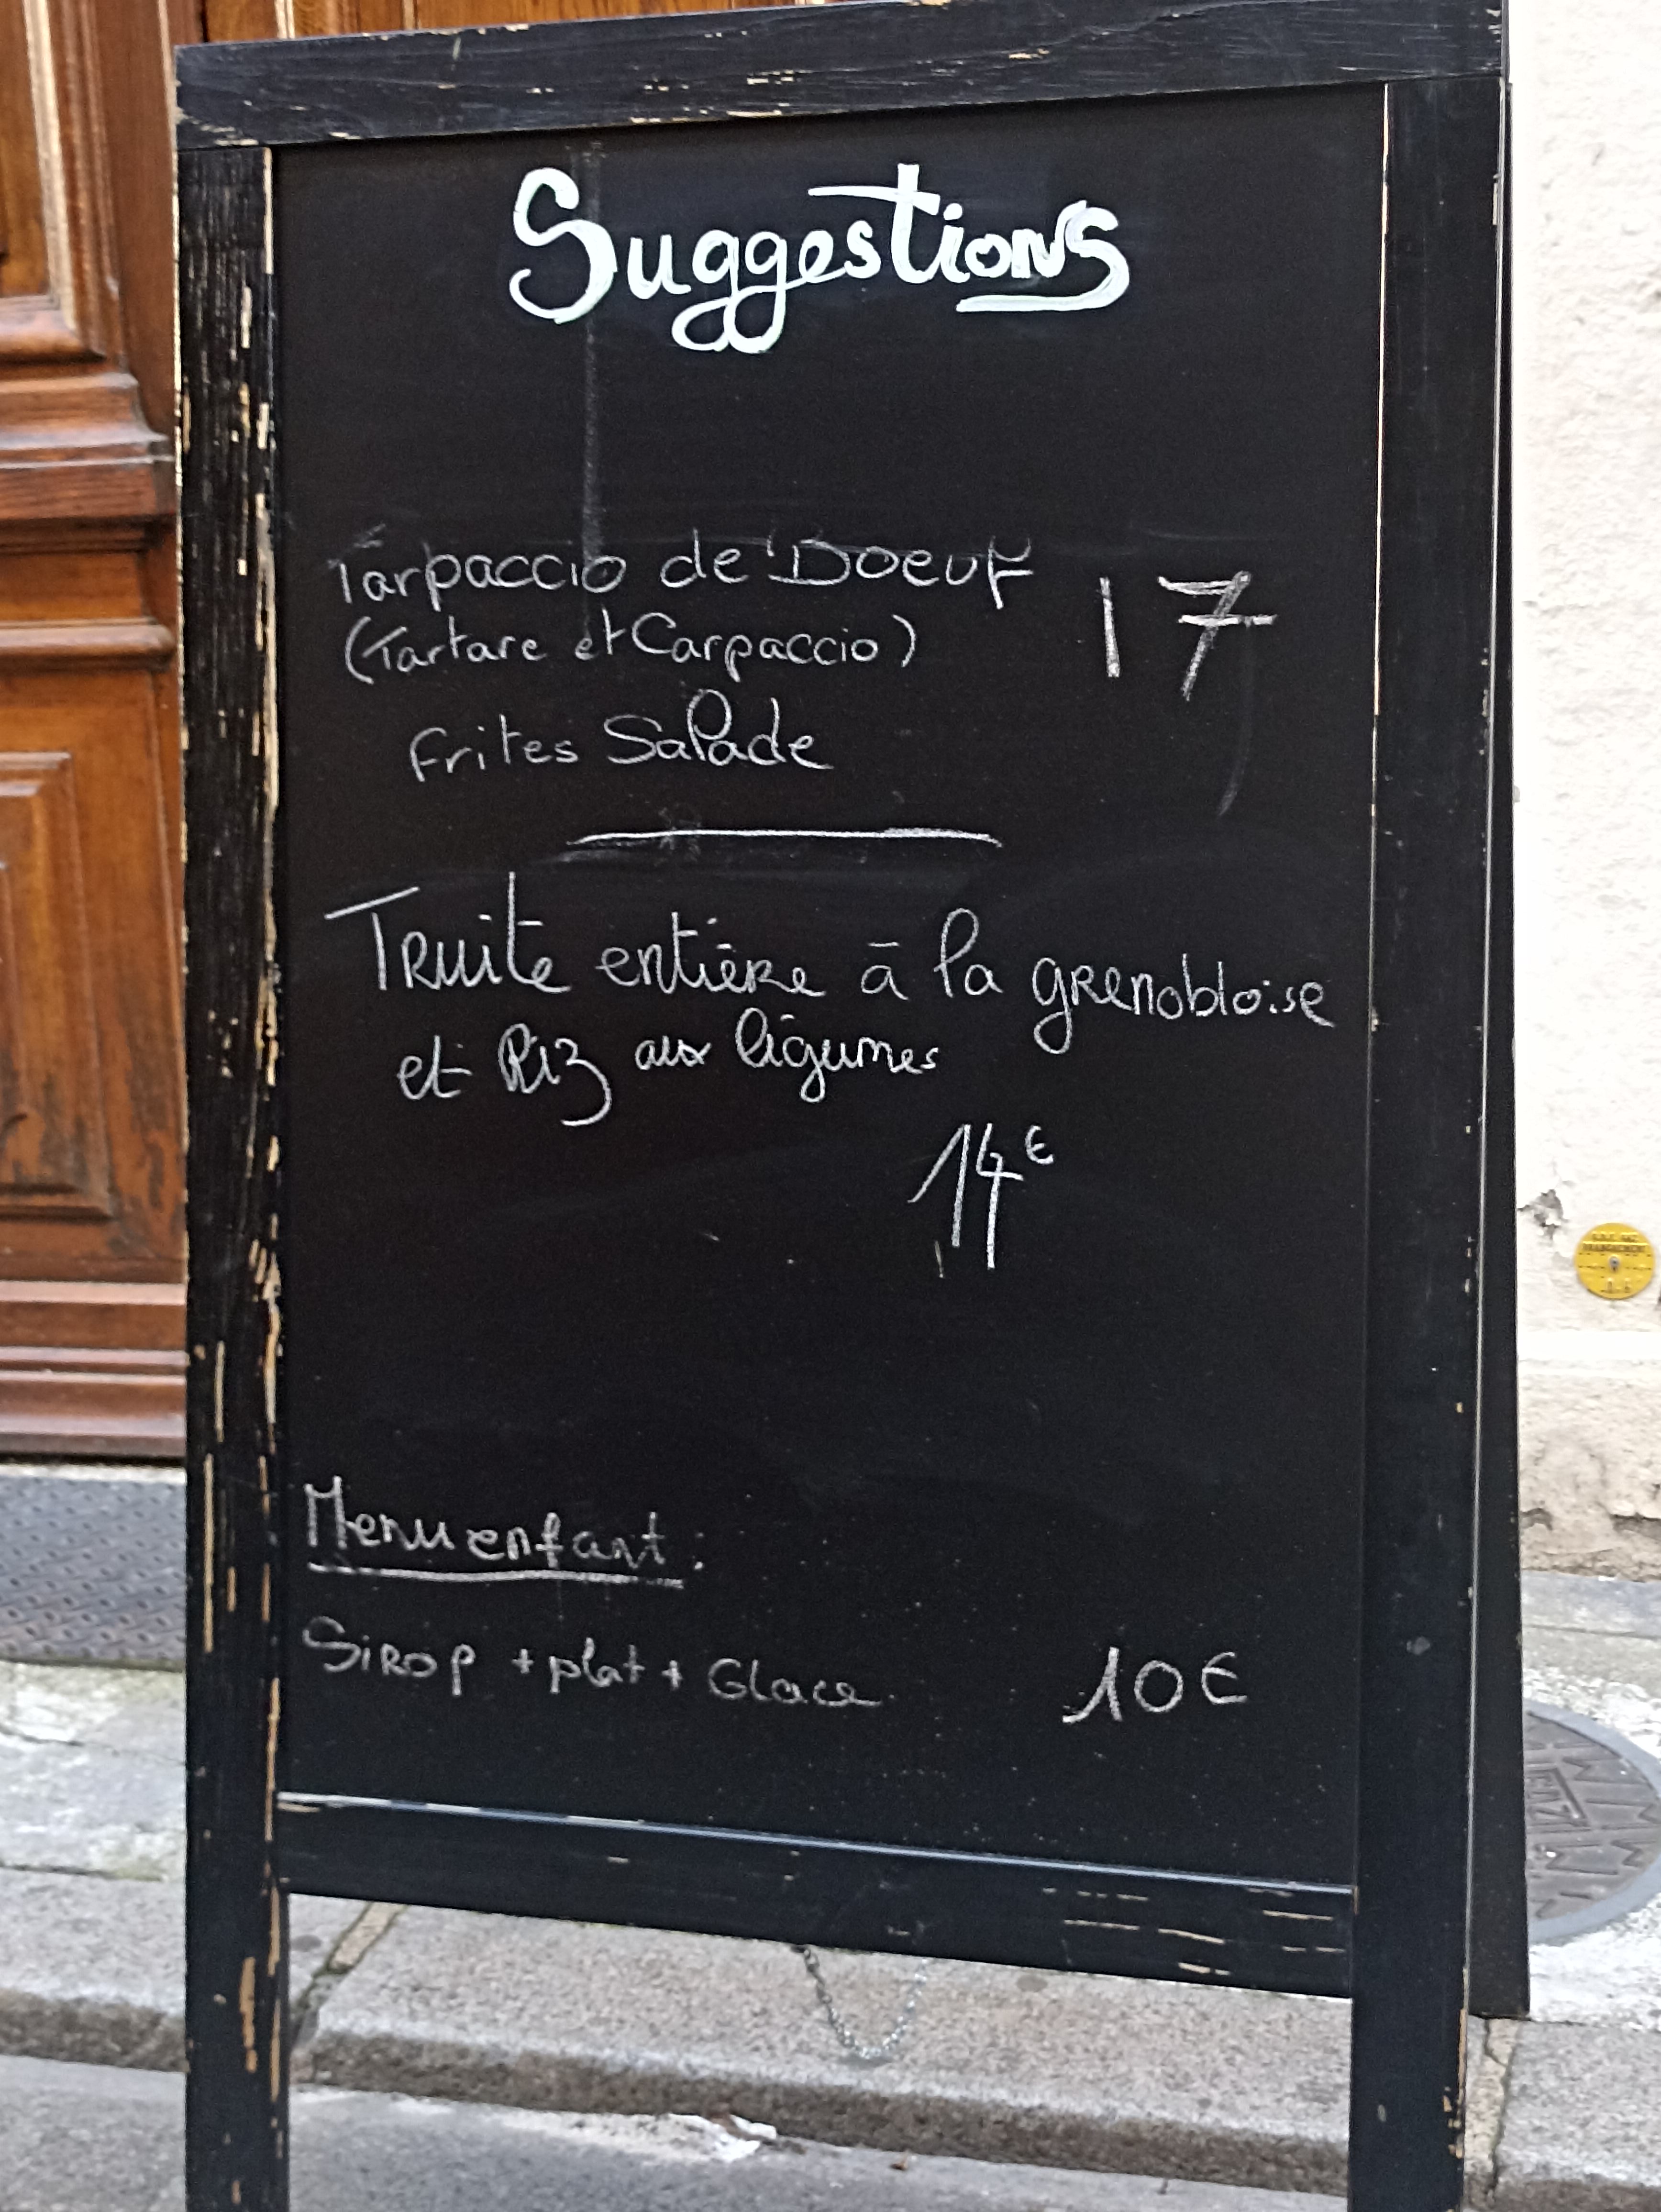 Suggestions
Tarpaccio de Boeuf 17
(Tartare et Carpaccio)
Frites Salade
Truite entière à la grenobloise
et Riz aux légumes
14€
Menu enfant :
Sirop + plat + Glace 10€